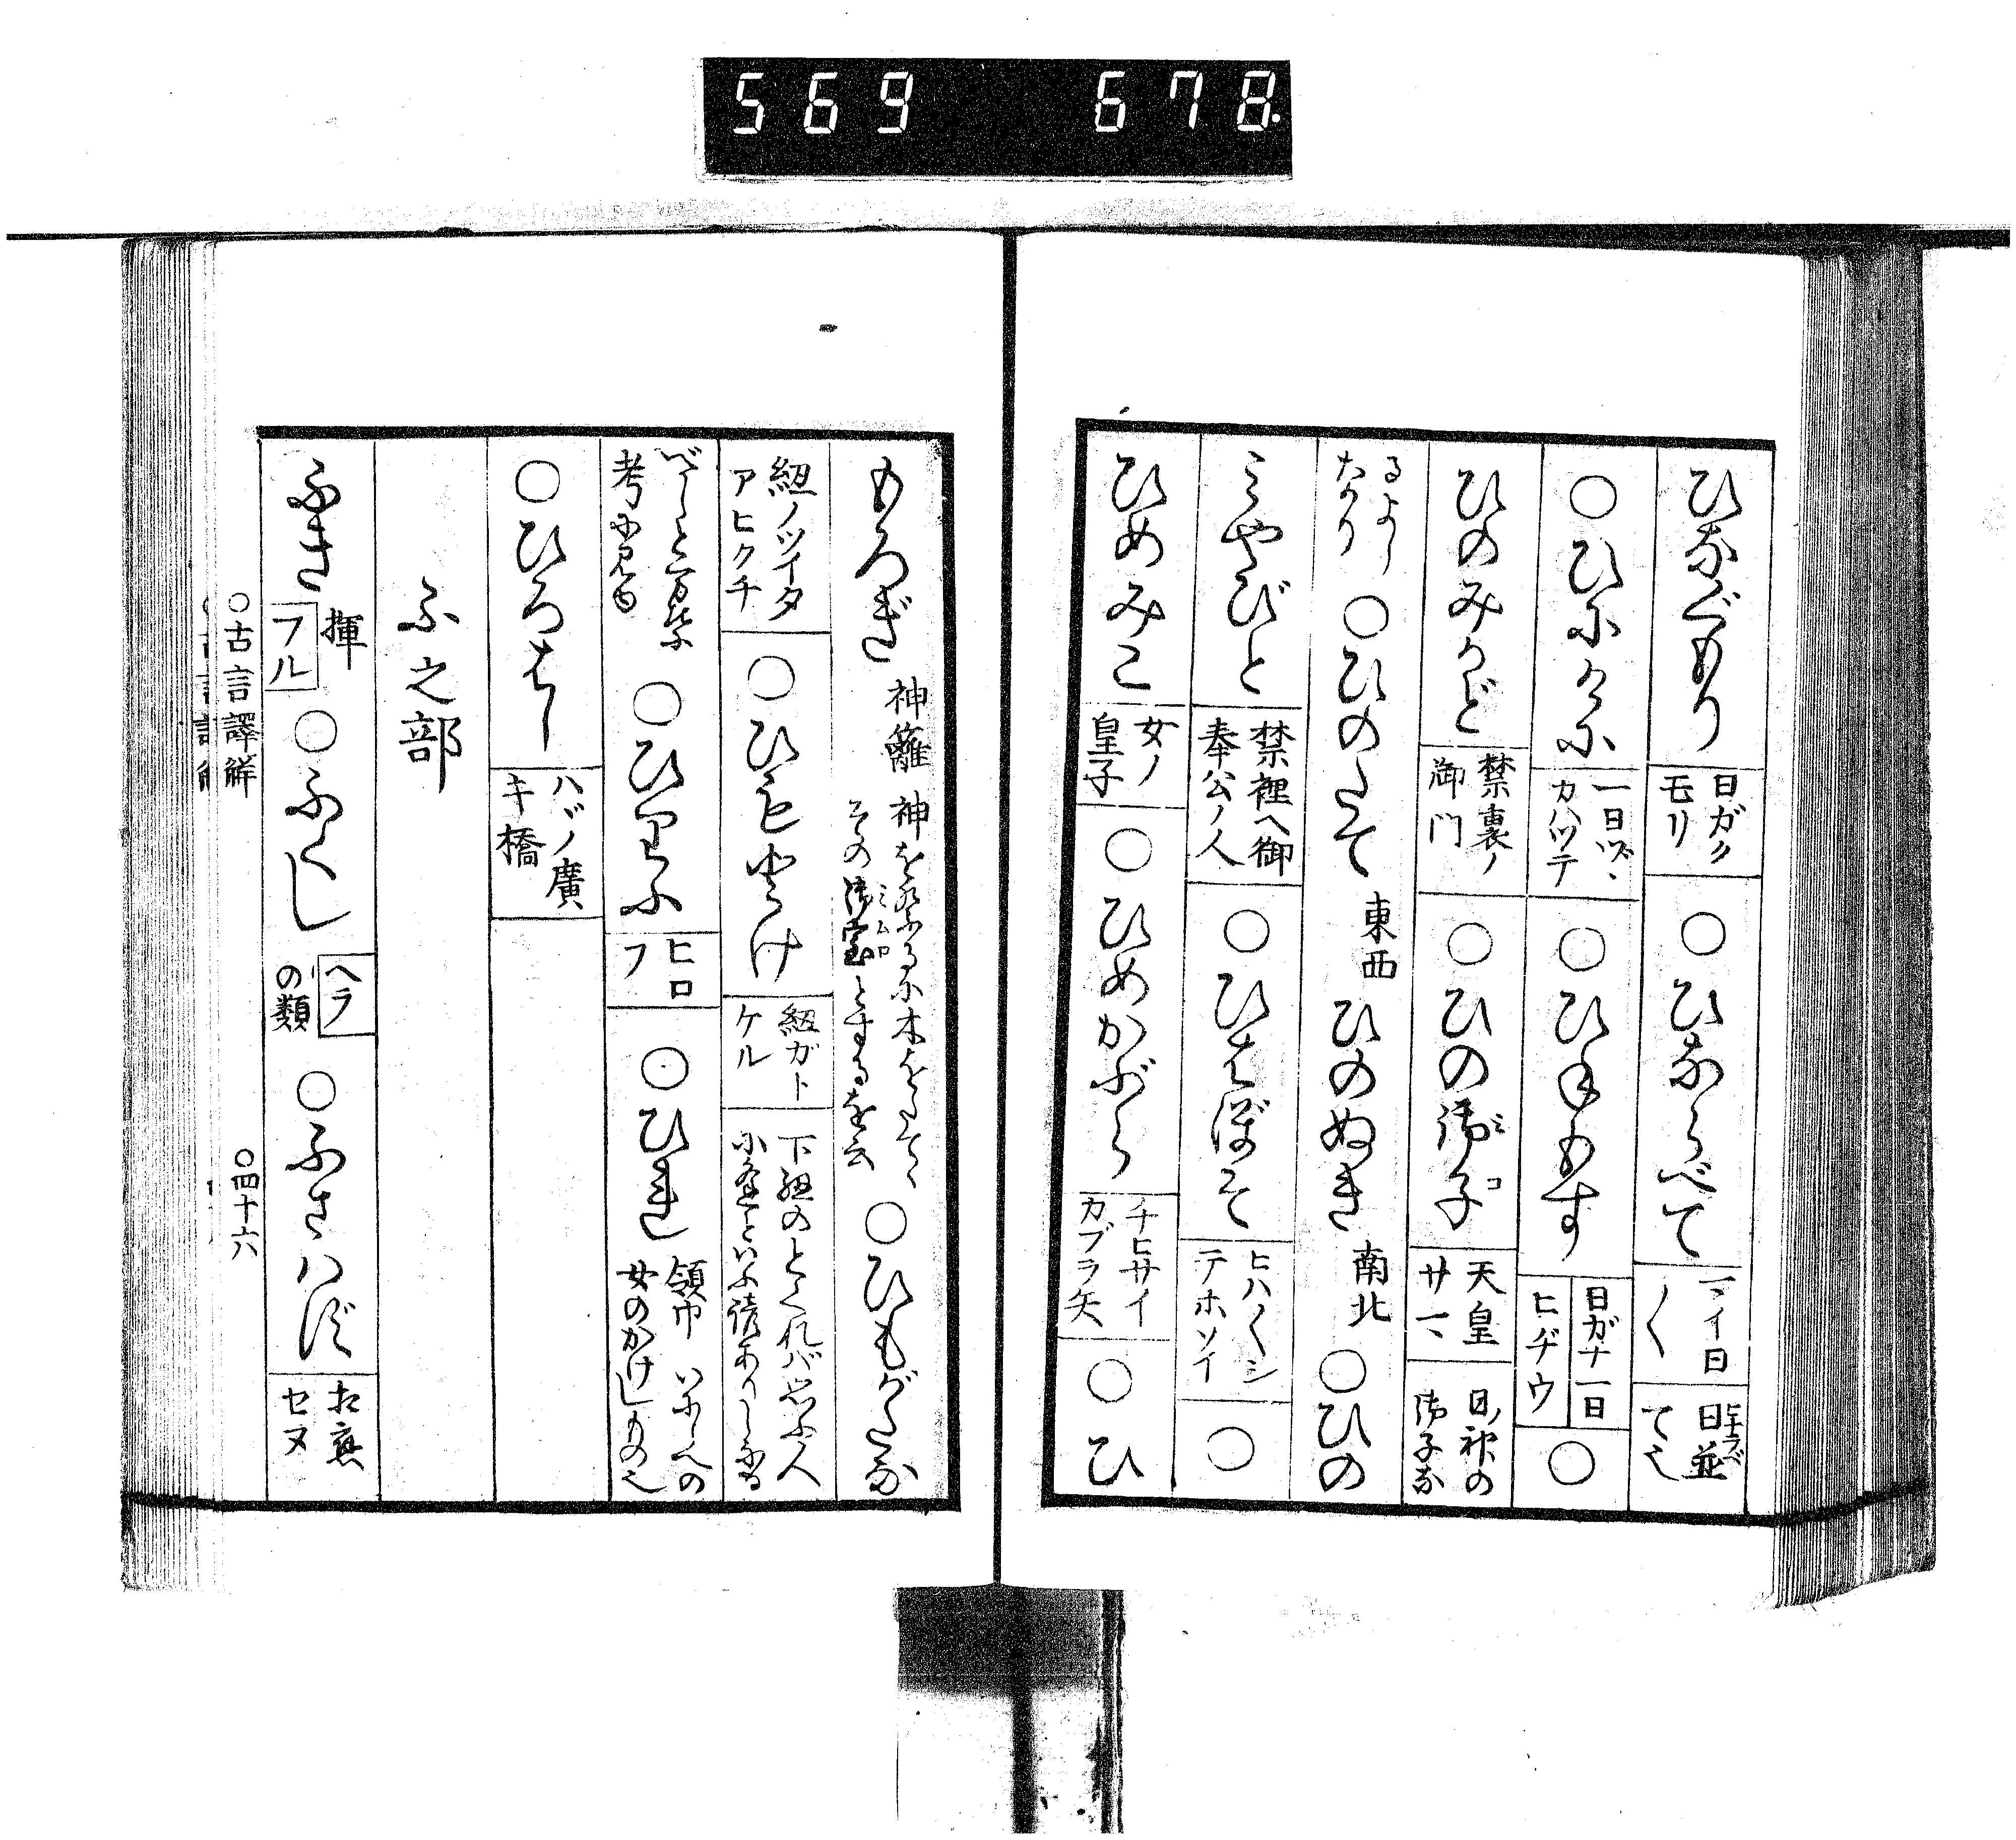 569 678
ひなぐもり 日ガクモリ ○ひならべて マイ日〳〵 日並ヒナラズてㇸ
○ひにけに 一日ヅヽカハツテ ○ひねもす 日ガナ一日 ヒヂウ ○
ひのみかど 禁裏ノ御門 ○ひの御子ミコ 天皇サマ 日ノ神の御子な
るよしたかり ○ひのたて 東西 ひのぬき 南北 ○ひの
みやびと 禁裡ヘ御奉公ノ人 ○ひはぼそ ヒハ〳〵シテホソイ ○
ひめみこ 女ノ皇子 ○ひめかぶら チヒサイカブラ矢 ○ひ
もろぎ 神籬 神を祭るに木をたてゝその御室ミムロとするを云 ○ひもがたな
紐ノツイタアヒクチ ○ひもとけ 紐ガトケル 下紐のとくれバ思ふ人に逢といふ諺ありしなる
べしと万葉考に見ゆ ○ひりふ ヒロフ ○ひれ 領巾 いにしへの女のかけしもの也
○ひろはし ハヾノ廣キ橋
ふ之部
ふき 揮 フル ○ふくし ヘラの類 ○ふさハず 相應セヌ
○古言譯解 ○四十六